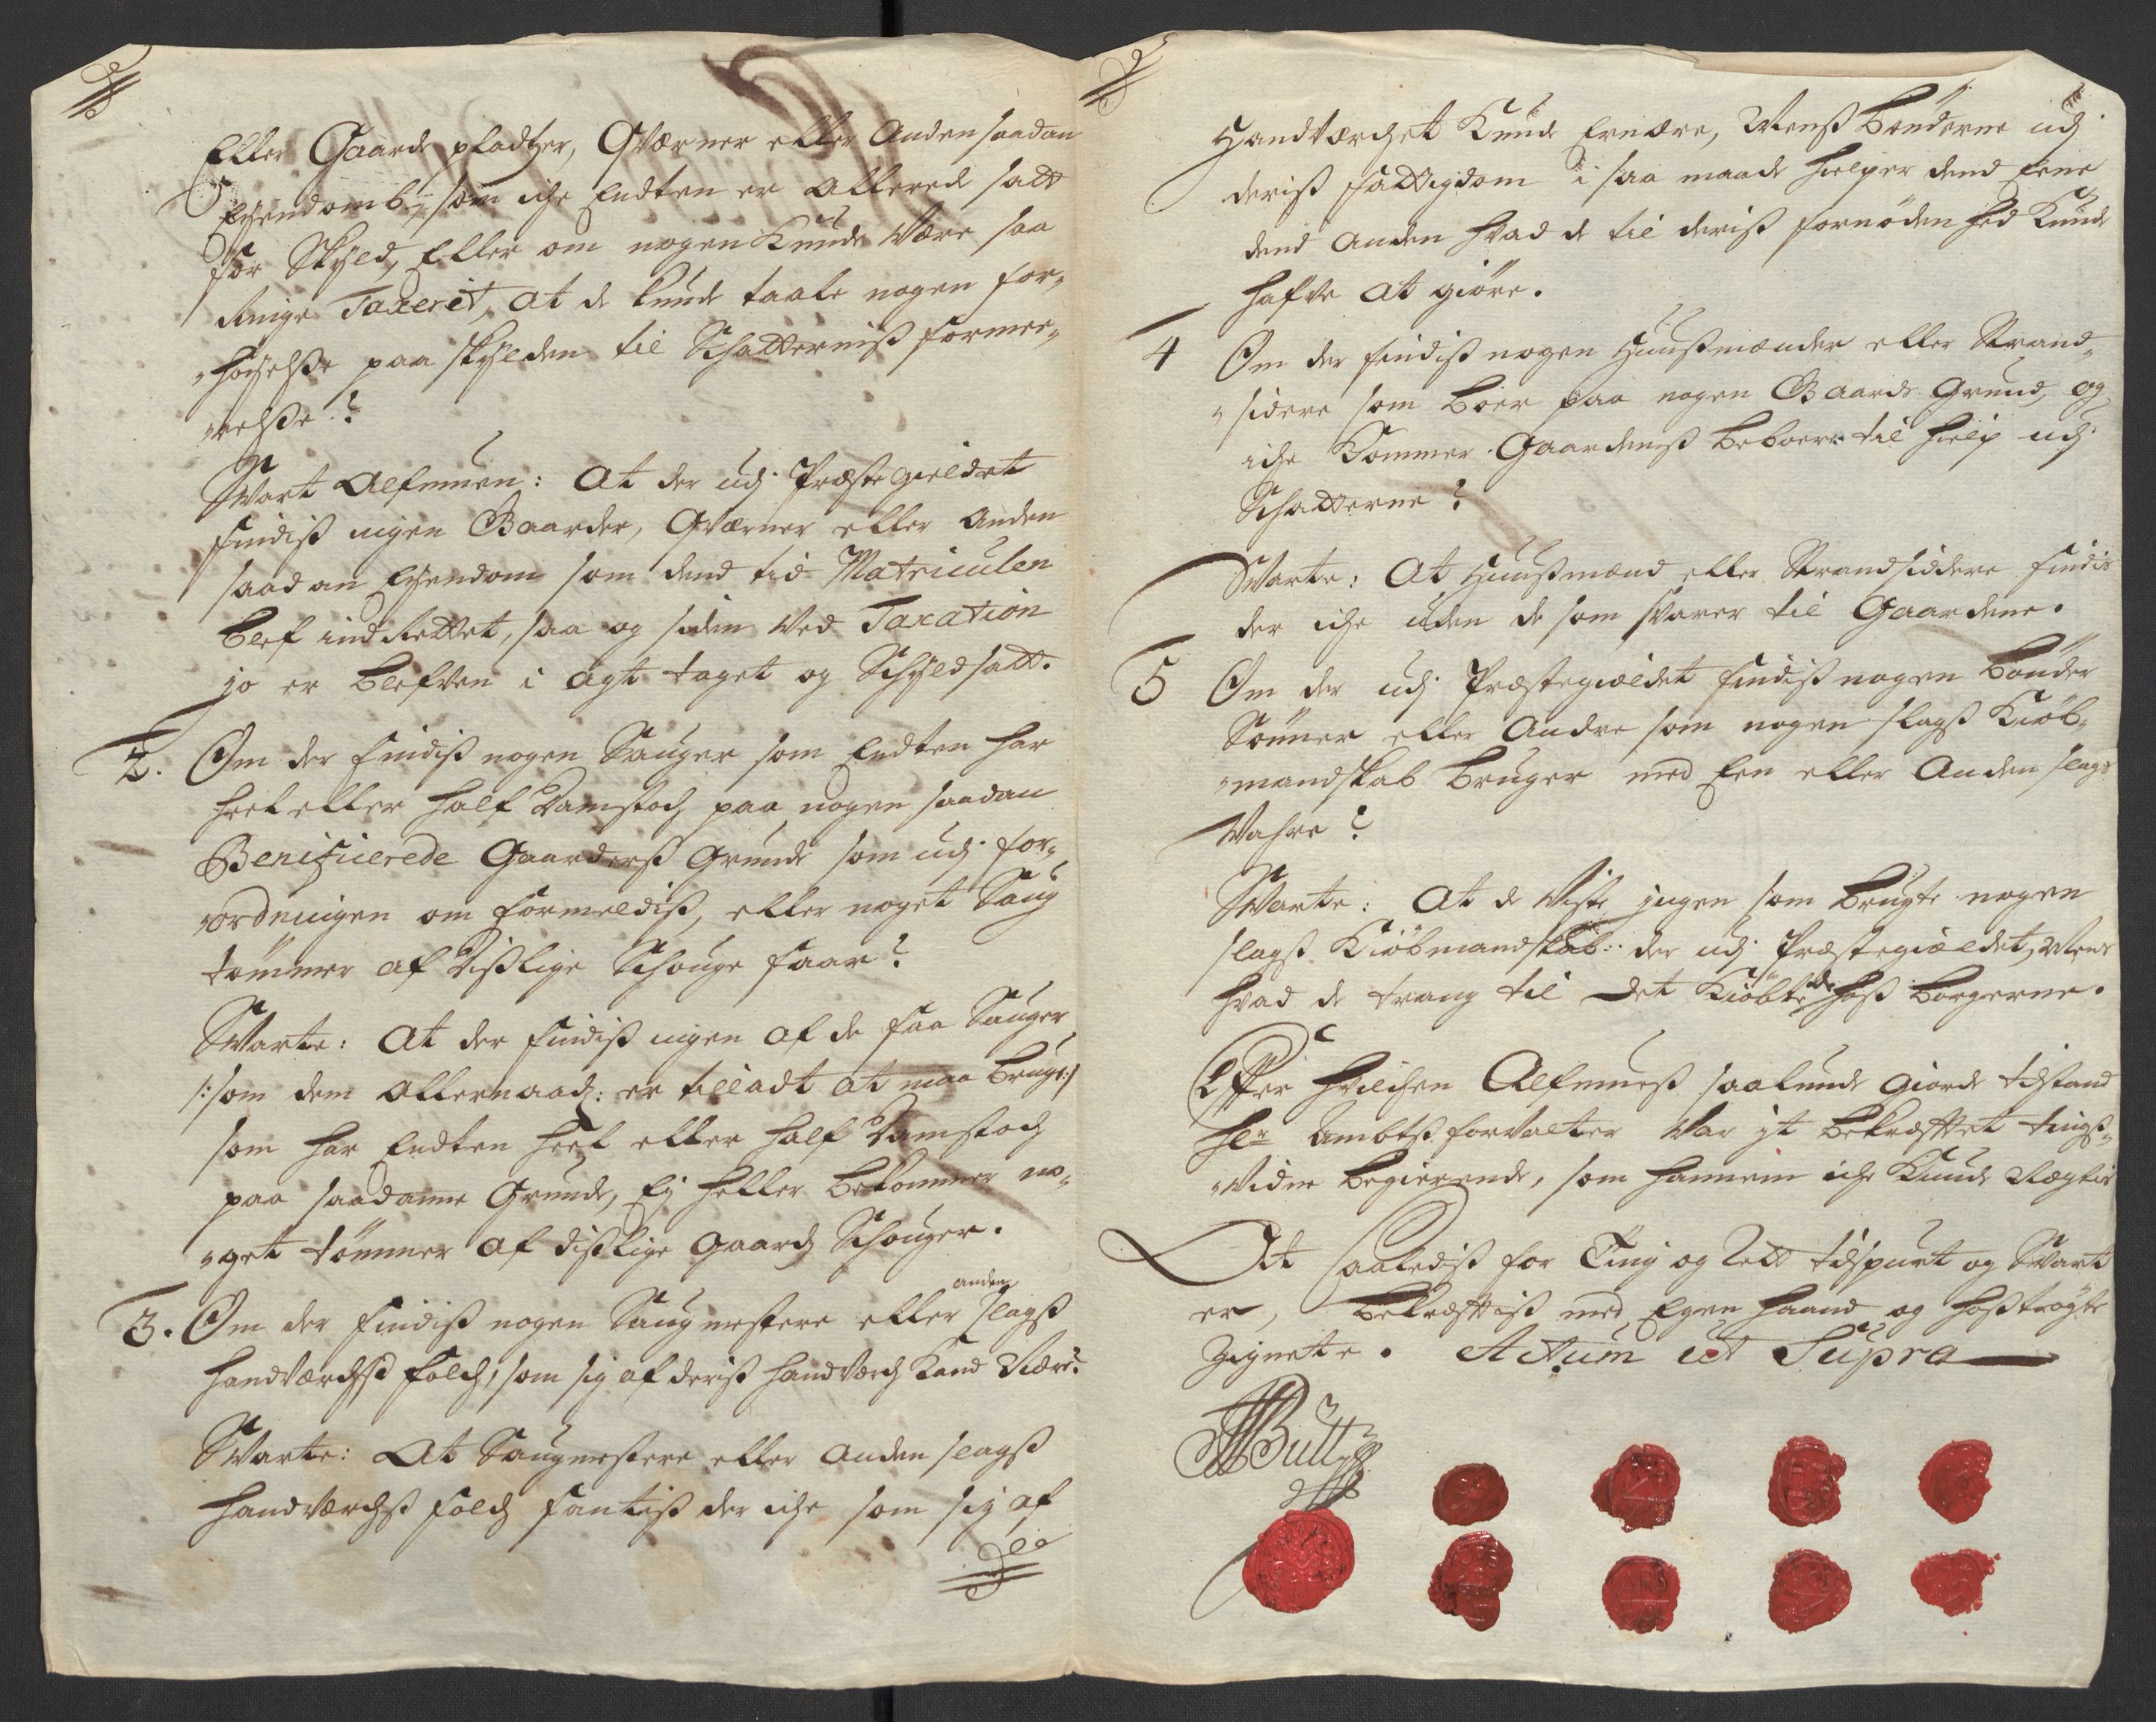 Eller Gaarde pladtzer, Qværner eller Anden saadan
Eyendomb, som iche Endten er allerede satt
for Skyld, Eller om nogen Kunde være saa
Ringe Taxerit, at de kunde taale nogen for„
„høyelse paa skylden til Schatternis formee„
„relsse?
Svart Alfmuen: At der udj Præstegieldet
findis ingen Gaarder, Qværner eller anden
saadan Eyendom som dend tid Matriculen
blef indrettet, saa og siden ved Taxation
jo er blefven i agt taget og Schyldsatt.
2. Om der findis nogen Sauger som Endten har
heel eller half Damstoch paa nogen saadan
Benificerede Gaarders Grunde som udj for„
„ordningen om formeldis, eller noget Saug
tømmer af dislige Schouge faar?
Svarte: At der findis ingen af de faa Sauger
/: som dem allernaad: er tilladt at maa bruge:/
som har Endten heel eller half Damstoch
paa saadanne Grunde, Ej heller bekommer no„
„get tømmer af dislige Gaards Schouger.
3. Om der findis nogen Saugmestere eller anden slags
handværchs folch, som sig af deris handværch kand Nære?
Svarte: At Saugmestere eller anden slags
handværchs folch fantis der iche som sig af
Handværchet Kunde Ernære, Mens bønderne udj
deris fattigdom i saa maade hielper dend Eene
dend anden hvad de til deris fornødenhed Kunde
hafve at giøre.
4 Om der findis nogen Huusmænder eller Strand„
„sidere som boer paa nogen Gaards Grund, og
iche Kommer Gaardens beboere til hielp udj
Schatterne?
Svarte: At Huusmænd eller Strandsiddere findis
der iche uden de som svarer til Gaardene.
5 Om der udj Præstegieldet findis nogen bønder
Sønner eller Andre som nogen slags Kiøb„
„mandskab bruger med Een eller Anden slags
Vahre?
Svarte: At de viste ingen som brugte nogen
slags Kiøbmandskab der udj Præstegieldet, Mens
hvad de trang til det Kiøbte de hos borgerne.
Efter hvilchen Alfmues saalunde giorde tilstand
Hr Ambts forvalter var it bekræfftet tings„
„vidne begierende, som hannem iche Kunde Nægtis
At saaledis for Ting og Rett tilspurt og Svart
er, bekræfftis med Egen haand og hostrøgte
Zignete. Actum ut Supra
Butt